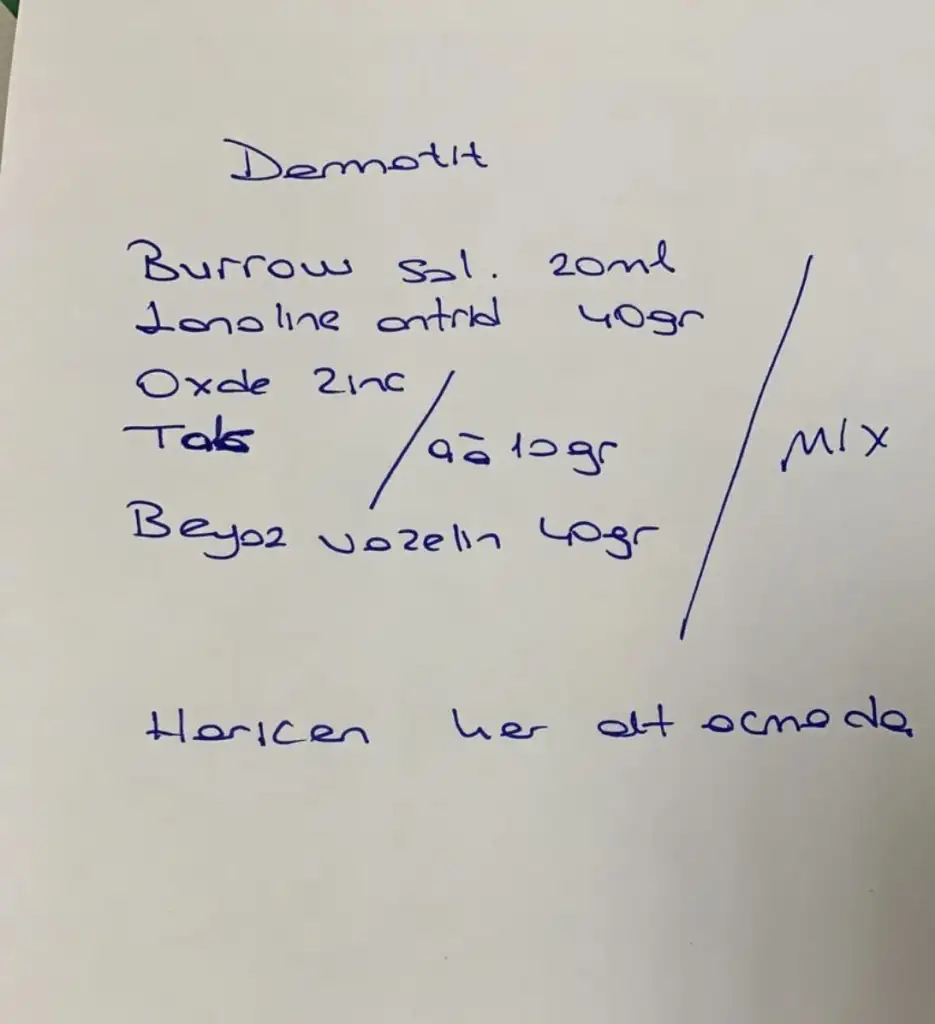 Dermatit
Burrow sol. 20ml
Lanoline anhrid 40gr
Oxde Zinc
Talk
aā 10gr
Beyaz vazelin 40gr
MIX
Haricen her alt açmada